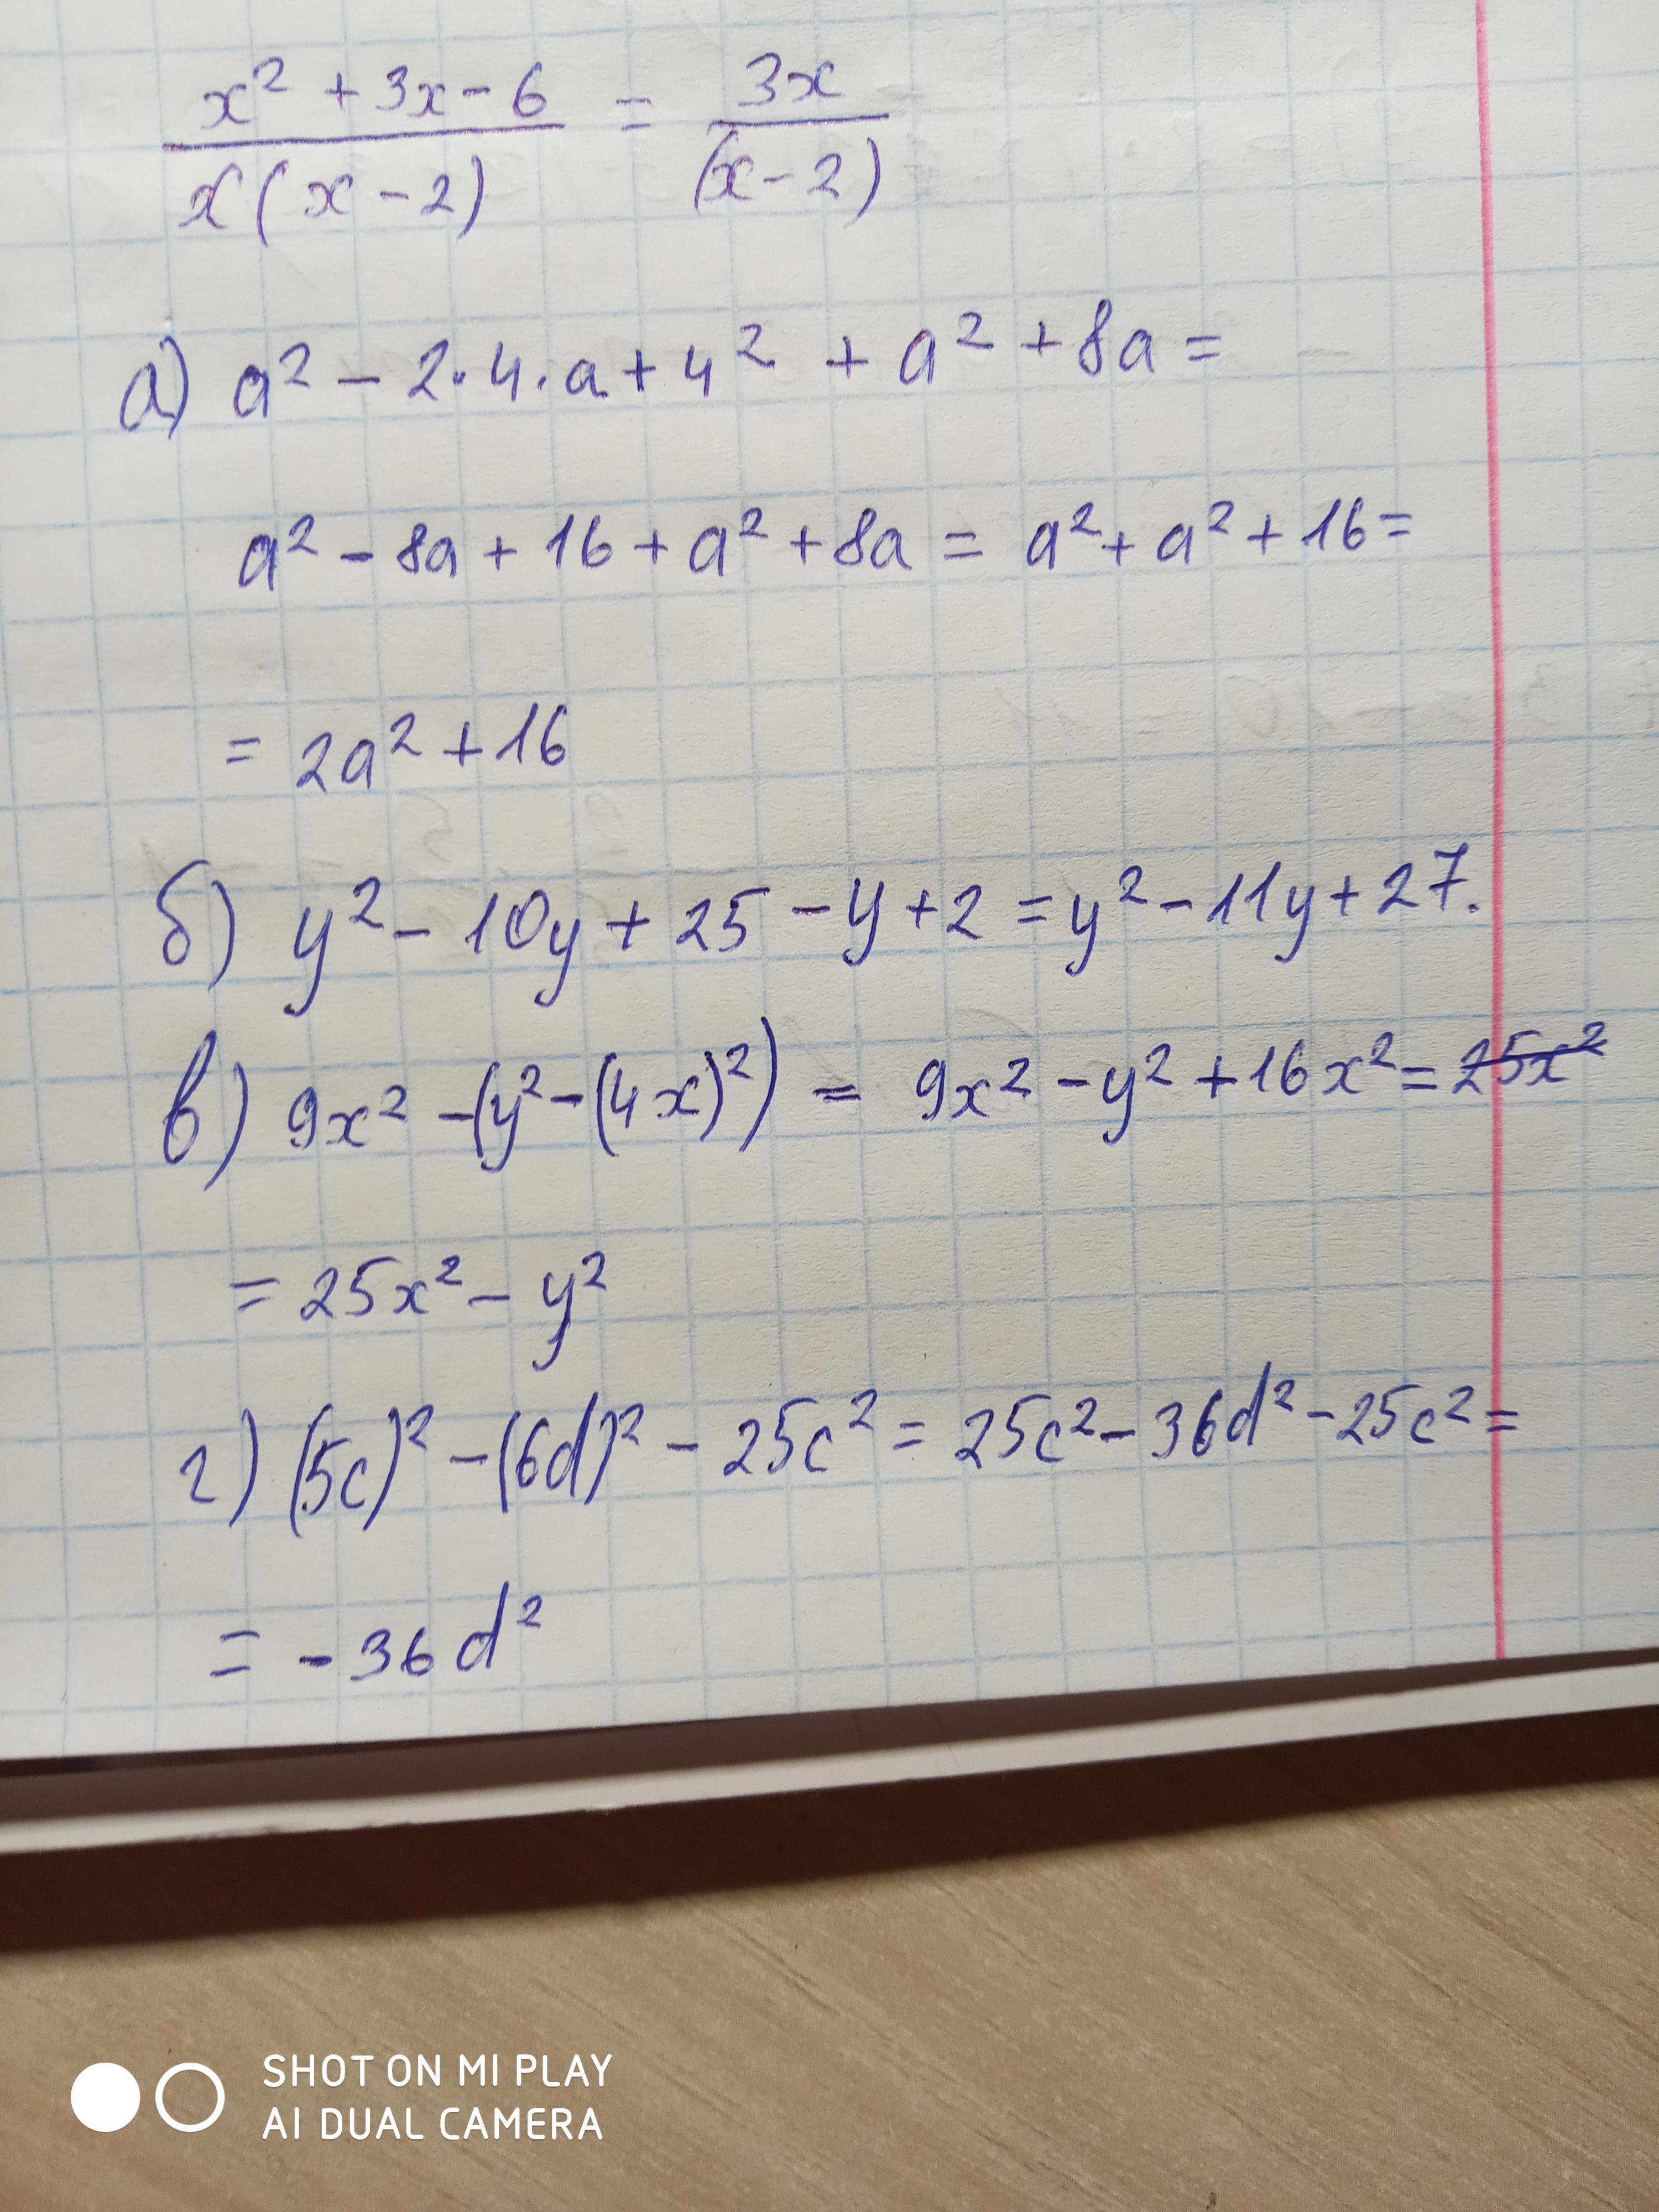 x² + 3x - 6 = 3x
x(x - 2) (x - 2)
а) a² - 2·4·a + 4² + a² + 8a =
a² - 8a + 16 + a² + 8a = a² + a² + 16 =
= 2a² + 16
б) y² - 10y + 25 - y + 2 = y² - 11y + 27.
в) 9x² - (y² - (4x)²) = 9x² - y² + 16x² = 25x²
= 25x² - y²
г) (5c)² - (6d)² - 25c² = 25c² - 36d² - 25c² =
= - 36d²
SHOT ON MI PLAY
AI DUAL CAMERA